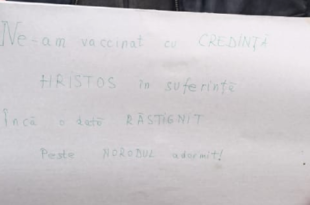 Ne-am vaccinat cu CREDINȚĂ
HRISTOS în suferință
Încă o dată RĂSTIGNIT
Poate NORODUL adormit!